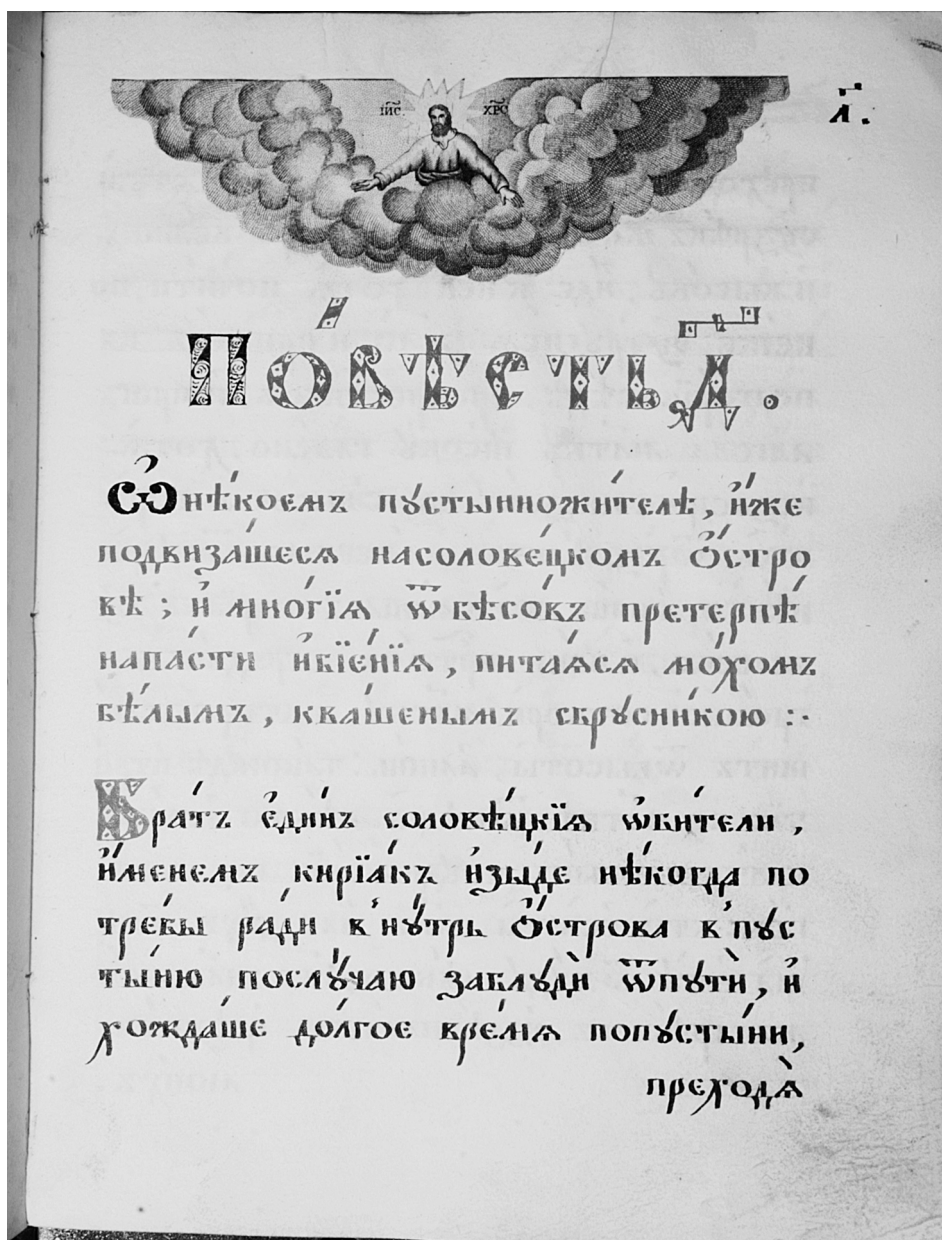 І҆И҃С. ХР҃С
л҃.
По́вѣсть д҃.
Ѡ҆ нѣ́коемъ пꙋстынножи́телѣ, и҆́же
подвиза́шесѧ насолове́цкомъ Ѻ҆́стро
вѣ; и҆ мно́гїѧ ѿ бѣсо́въ претерпѣ́
напа́сти и҆бїе́нїѧ, пита́ѧсѧ мо́хомъ
бѣ́лымъ, ква́шенымъ сбрꙋсни́кою :·
Бра́тъ є҆ди́нъ солове́цкїѧ ѡ҆би́тели,
и҆́менемъ кирїа́къ и҆зы́де нѣ́когда по
тре́бы ра́ди в̾ нꙋ́трь Ѻ҆́строва в̾ пꙋс
ты́ню послꙋ́чаю заблꙋдѝ ѿпꙋтѝ, и҆
хожда́ше до́лгое вре́мѧ попꙋсты́ни,
преходѧ̀